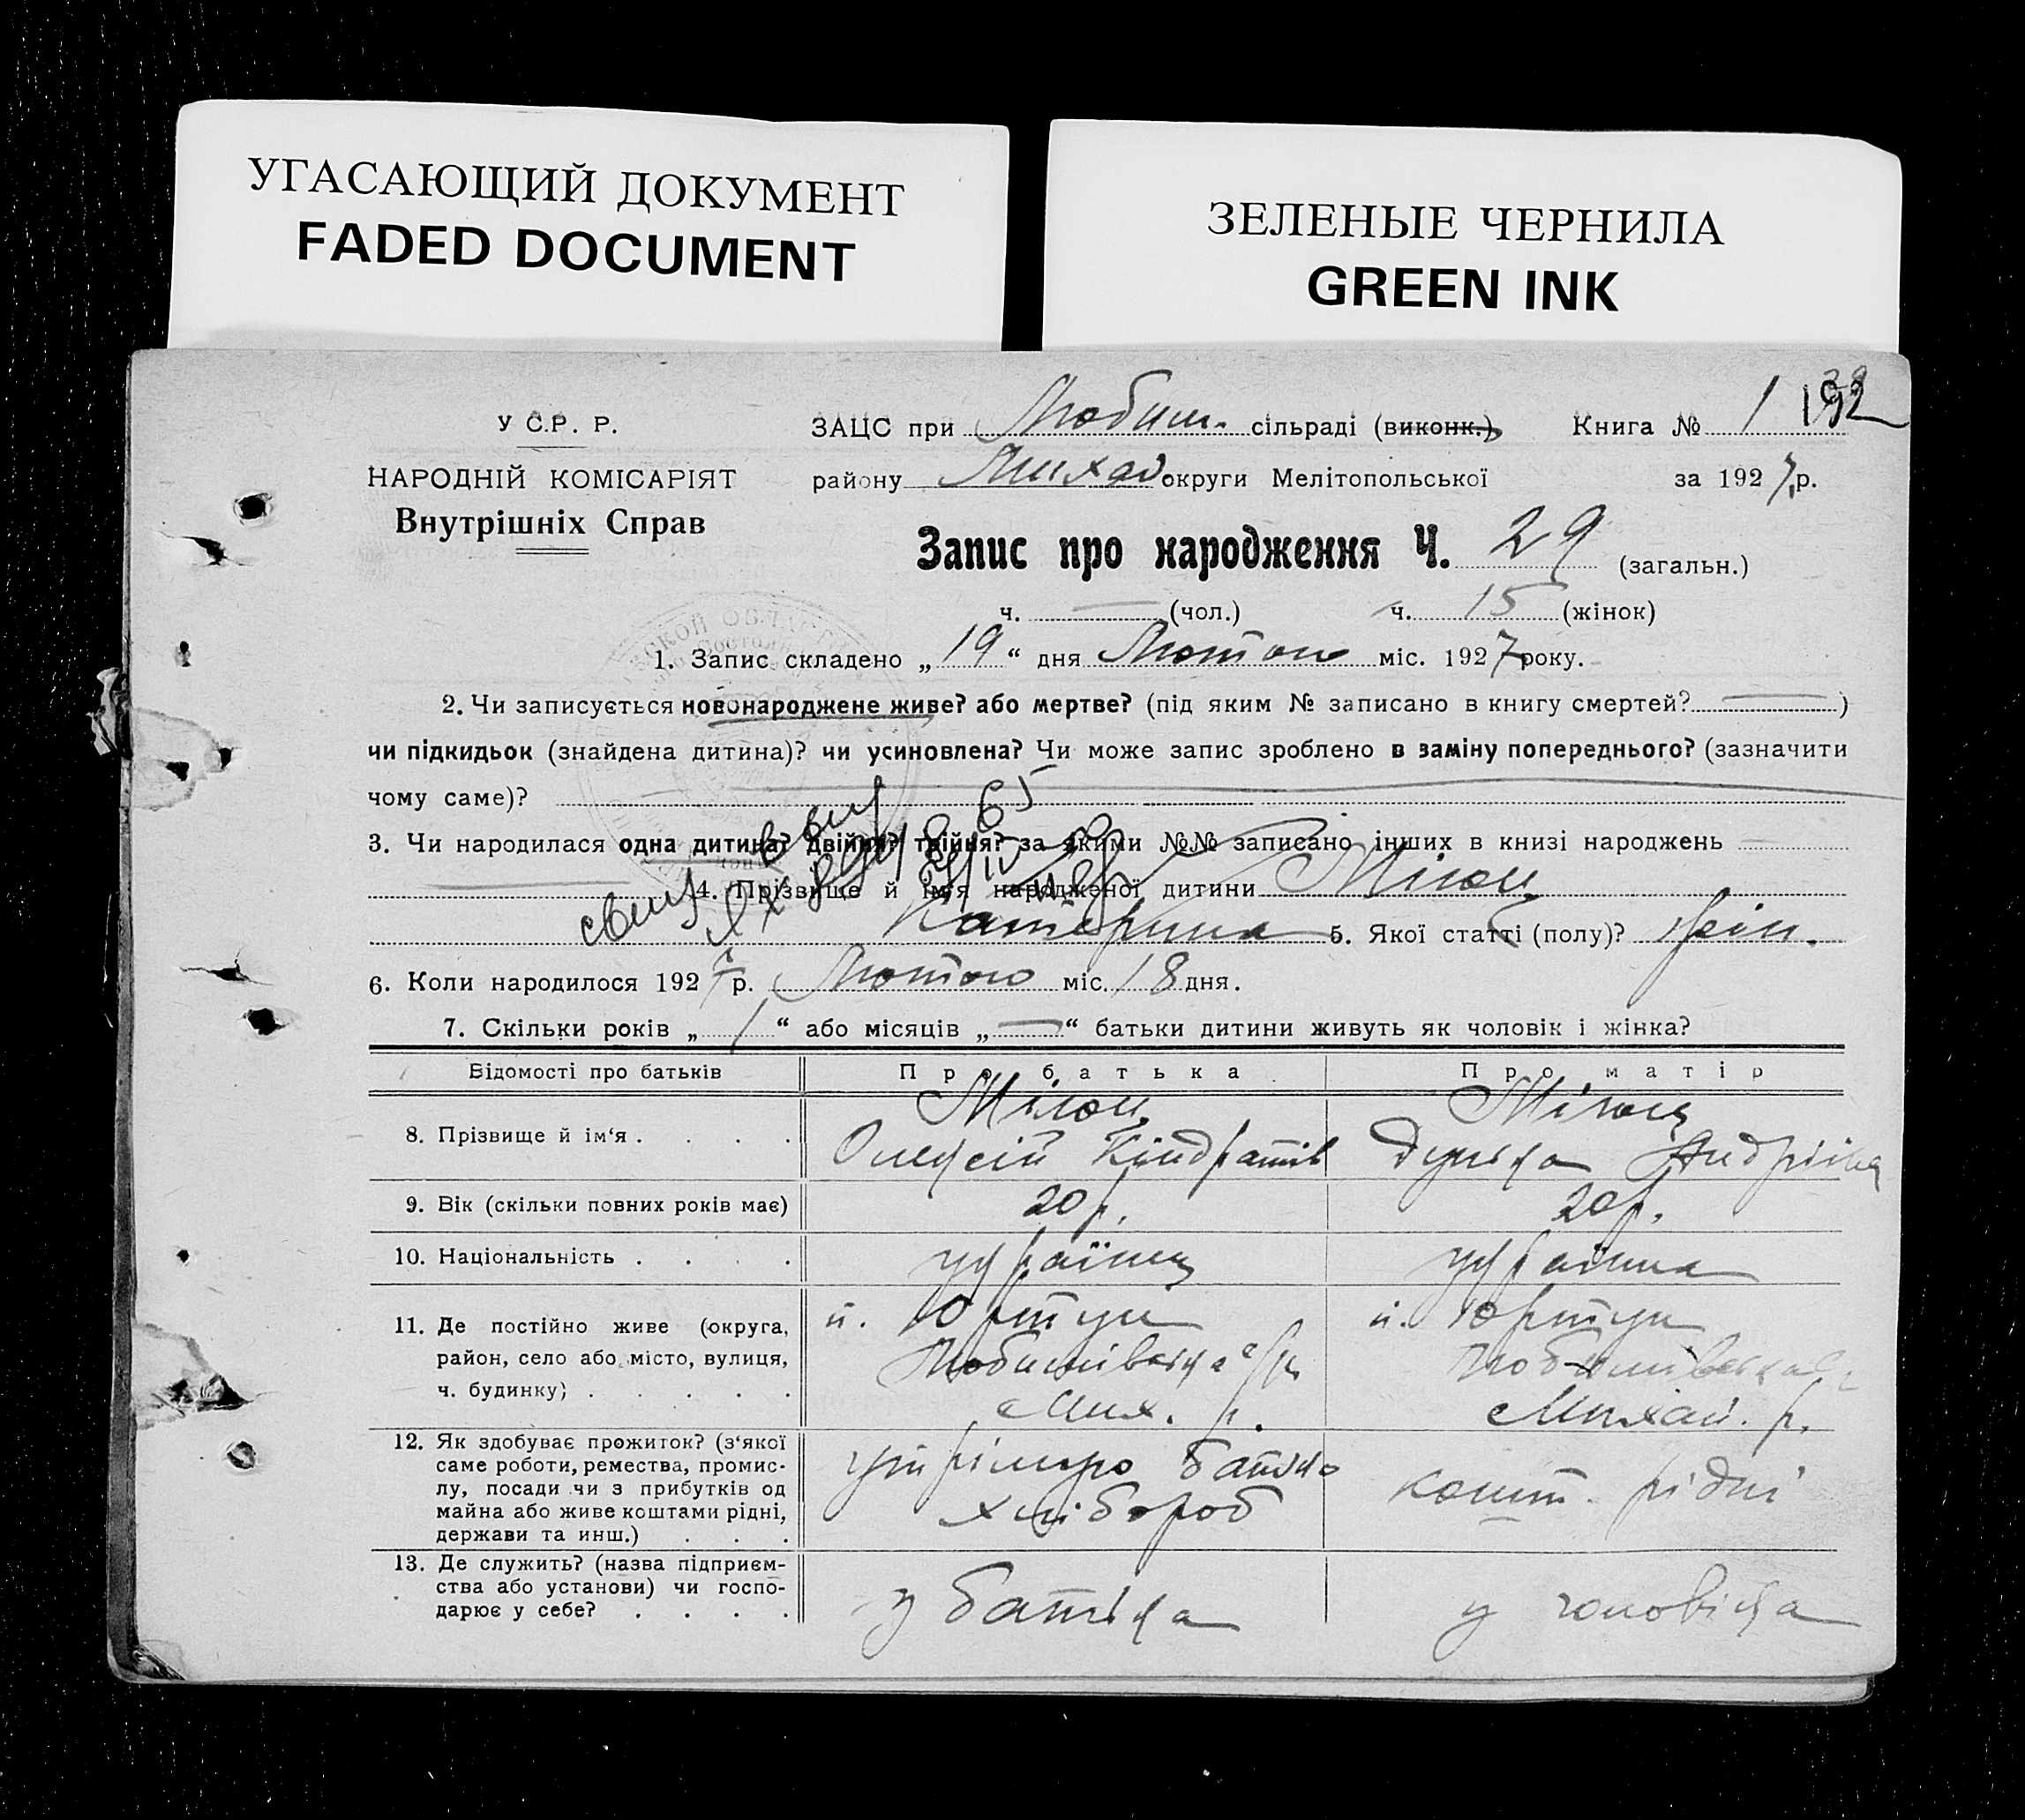 УГАСАЮЩИЙ ДОКУМЕНТ
FADED DOCUMENT
ЗЕЛЕНЫЕ ЧЕРНИЛА
GREEN INK
У С.Р. Р.
НАРОДНІЙ КОМІСАРІЯТ
Внутрішніх Справ
ЗАЦС при Любим. сільраді (виконк.) Книга № 1
району Михай округи Мелітопольської за 1927 р.
Запис про народження Ч. 29 (загальн.)
ч. — (чол.) ч. 15 (жінок)
1. Запис складено „19“ дня Лютого міс. 1927 року.
2. Чи записується новонароджене живе? або мертве? (під яким № записано в книгу смертей? — )
чи підкидьок (знайдена дитина)? чи усиновлена? Чи може запис зроблено в заміну попереднього? (зазначити
чому саме)?
3. Чи народилася одна дитина? двійня? трійня? за якими №№ записано інших в книзі народжень —
4. Прізвище й ім'я народженої дитини Мілоц
Катерина 5. Якої статті (полу)? жін.
6. Коли народилося 1927 р. Лютого міс. 18 дня.
7. Скільки років „1“ або місяців „—“ батьки дитини живуть як чоловік і жінка?
Відомості про батьків Про батька Про матір
8. Прізвище й ім'я . . . . Мілоц
Олексій Кіндратів Андріївна
9. Вік (скільки повних років має) 20 р. 20 р.
10. Національність . . . . українец українка
11. Де постійно живе (округа,
район, село або місто, вулиця,
ч. будинку) . . . . .
п. Юртук
Любимівська с/р
Мих. р.
п. Юртук
Любимівська
Михай. р.
12. Як здобуває прожиток? (з'якої
саме роботи, ремества, промис-
лу, посади чи з прибутків од
майна або живе коштами рідні,
держави та инш.) . . .
батька
хлібороб
кошт. рідні
13. Де служить? (назва підприєм-
ства або установи) чи госпо-
дарює у себе? . . . .
у батька
у чоловіка